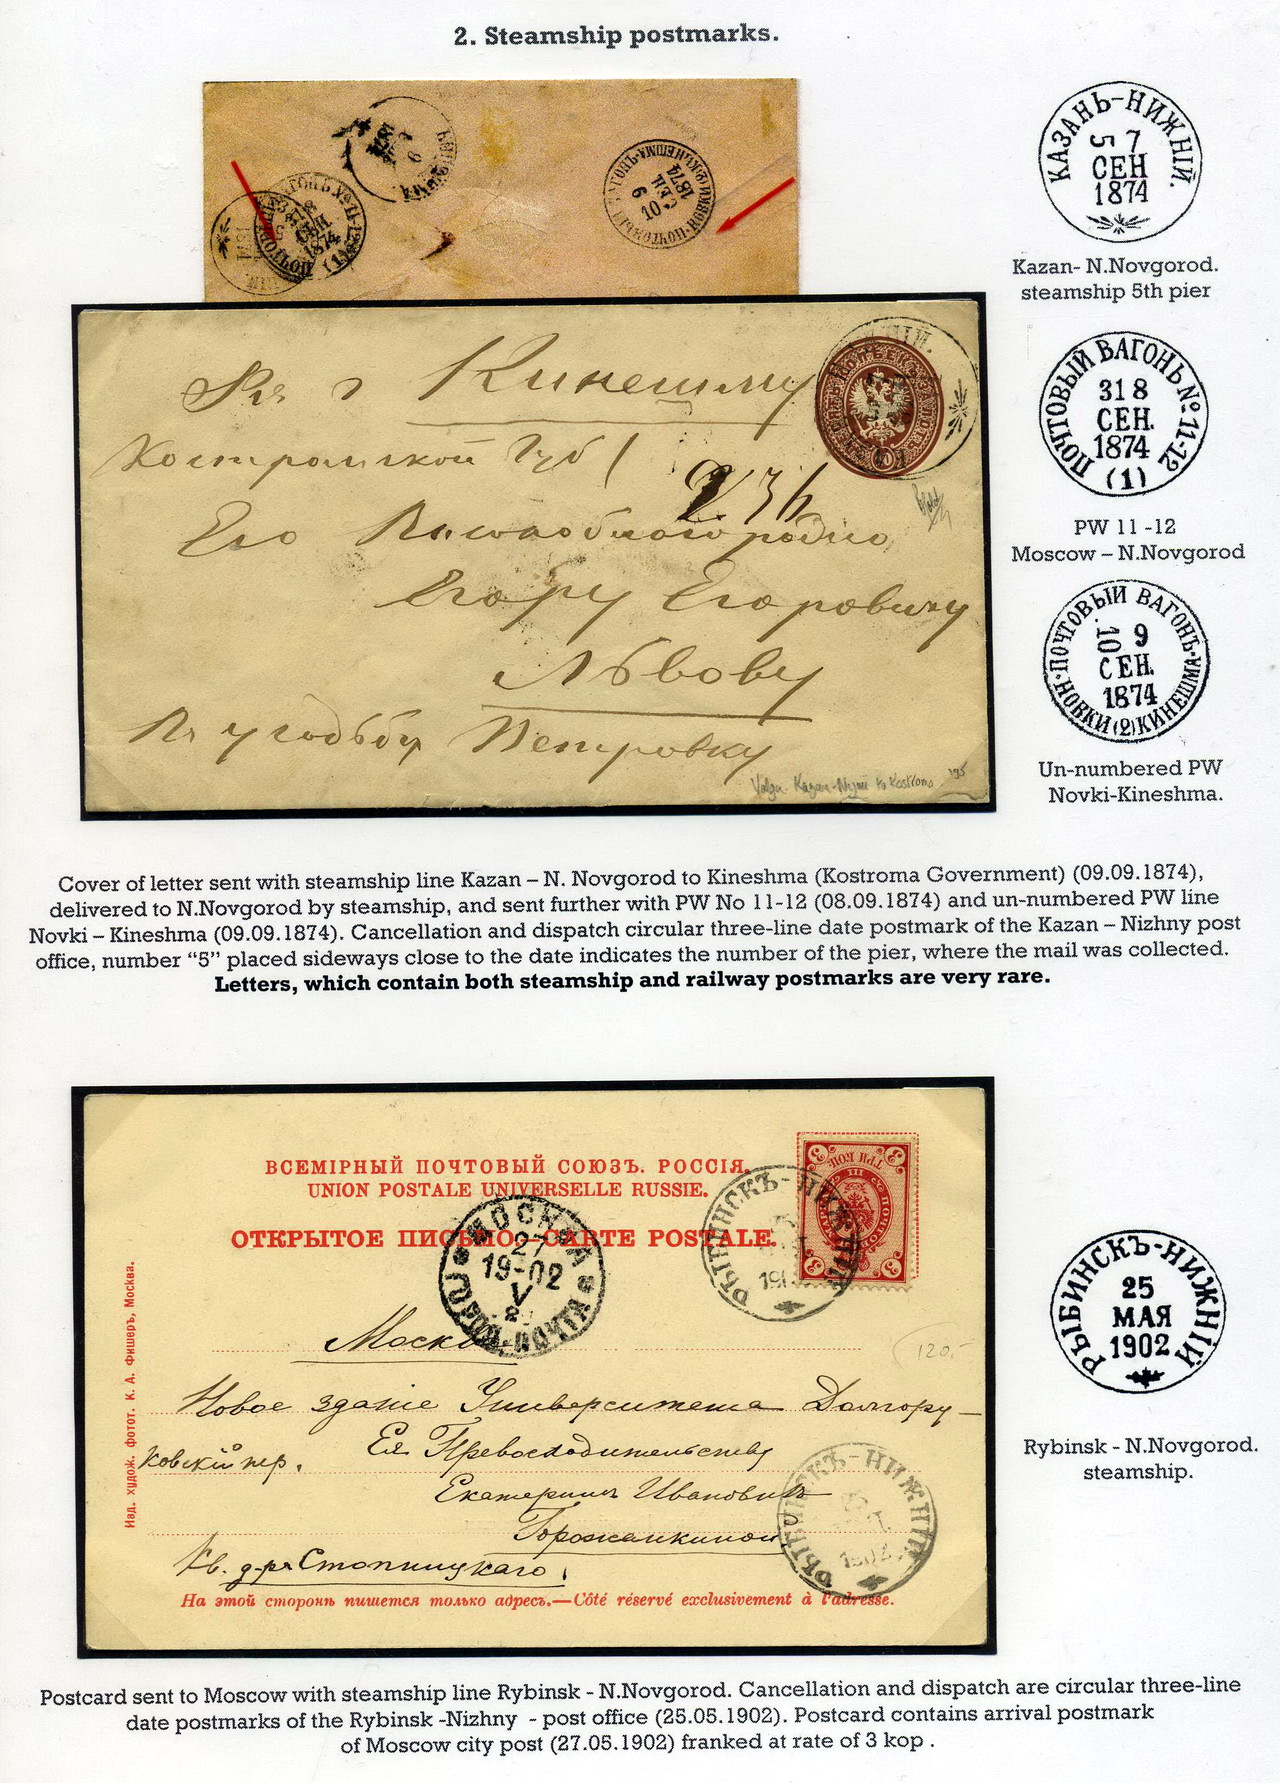 2. Steamship postmarks.
КАЗАНЬ-НИЖНІЙ.
5 7
СЕН
1874
Kazan- N.Novgorod.
steamship 5th pier
ПОЧТОВЫЙ ВАГОНЪ № 11-12
31 8
СЕН.
1874
(1)
PW 11 -12
Moscow – N.Novgorod
ПОЧТОВЫЙ ВАГОНЪ
10 9
СЕН.
1874
НОВКИ (2) КИНЕШМА
Un-numbered PW
Novki-Kineshma.
Въ г Кинешму
Костромской Губ
Его Высокоблагородію
Егору Егоровичу
Львову
Въ усадьбу Петровку
Volga Kazan-Nijni to Kostroma
Cover of letter sent with steamship line Kazan – N. Novgorod to Kineshma (Kostroma Government) (09.09.1874),
delivered to N.Novgorod by steamship, and sent further with PW No 11-12 (08.09.1874) and un-numbered PW line
Novki – Kineshma (09.09.1874). Cancellation and dispatch circular three-line date postmark of the Kazan – Nizhny post
office, number “5” placed sideways close to the date indicates the number of the pier, where the mail was collected.
Letters, which contain both steamship and railway postmarks are very rare.
ВСЕМІРНЫЙ ПОЧТОВЫЙ СОЮЗЪ. РОССІЯ.
UNION POSTALE UNIVERSELLE RUSSIE.
ОТКРЫТОЕ ПИСЬМО.—CARTE POSTALE.
МОСКВА
27
19-02
V
РЫБИНСКЪ-НИЖНІЙ
3 ТРИ КОП. 3
Изд. худож. фотот. К. А. Фишеръ, Москва.
Москва
120.-
Новое зданіе Университета Долгору-
ковскій пер.
Ея Превосходительству
Екатеринѣ Ивановнѣ
Горожанкиной
Кв. д-ра Стопницкаго.
РЫБИНСКЪ-НИЖНІЙ
На этой сторонѣ пишется только адресъ.—Côté réservé exclusivement à l'adresse.
РЫБИНСКЪ-НИЖНІЙ
25
МАЯ
1902
Rybinsk - N.Novgorod.
steamship.
Postcard sent to Moscow with steamship line Rybinsk - N.Novgorod. Cancellation and dispatch are circular three-line
date postmarks of the Rybinsk -Nizhny - post office (25.05.1902). Postcard contains arrival postmark
of Moscow city post (27.05.1902) franked at rate of 3 kop .